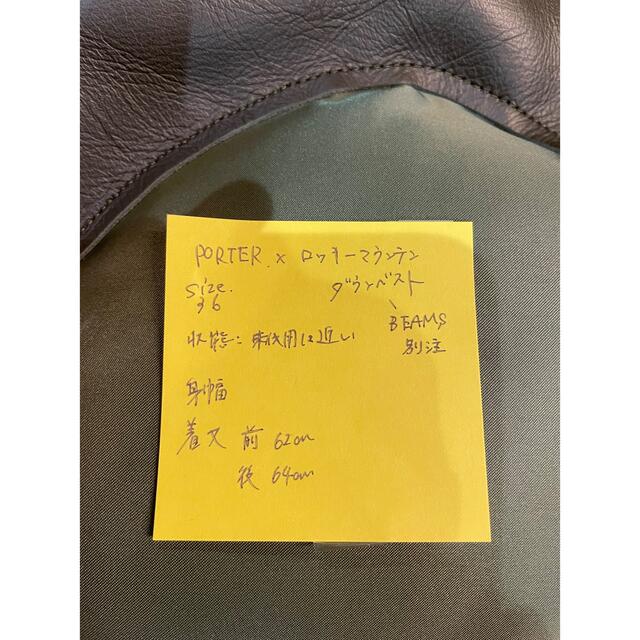 PORTER. × ロッキーマウンテン
size. ダウンベスト
36
BEAMS
別注
状態: 未使用に近い
身幅
着丈 前 62cm
後 64cm